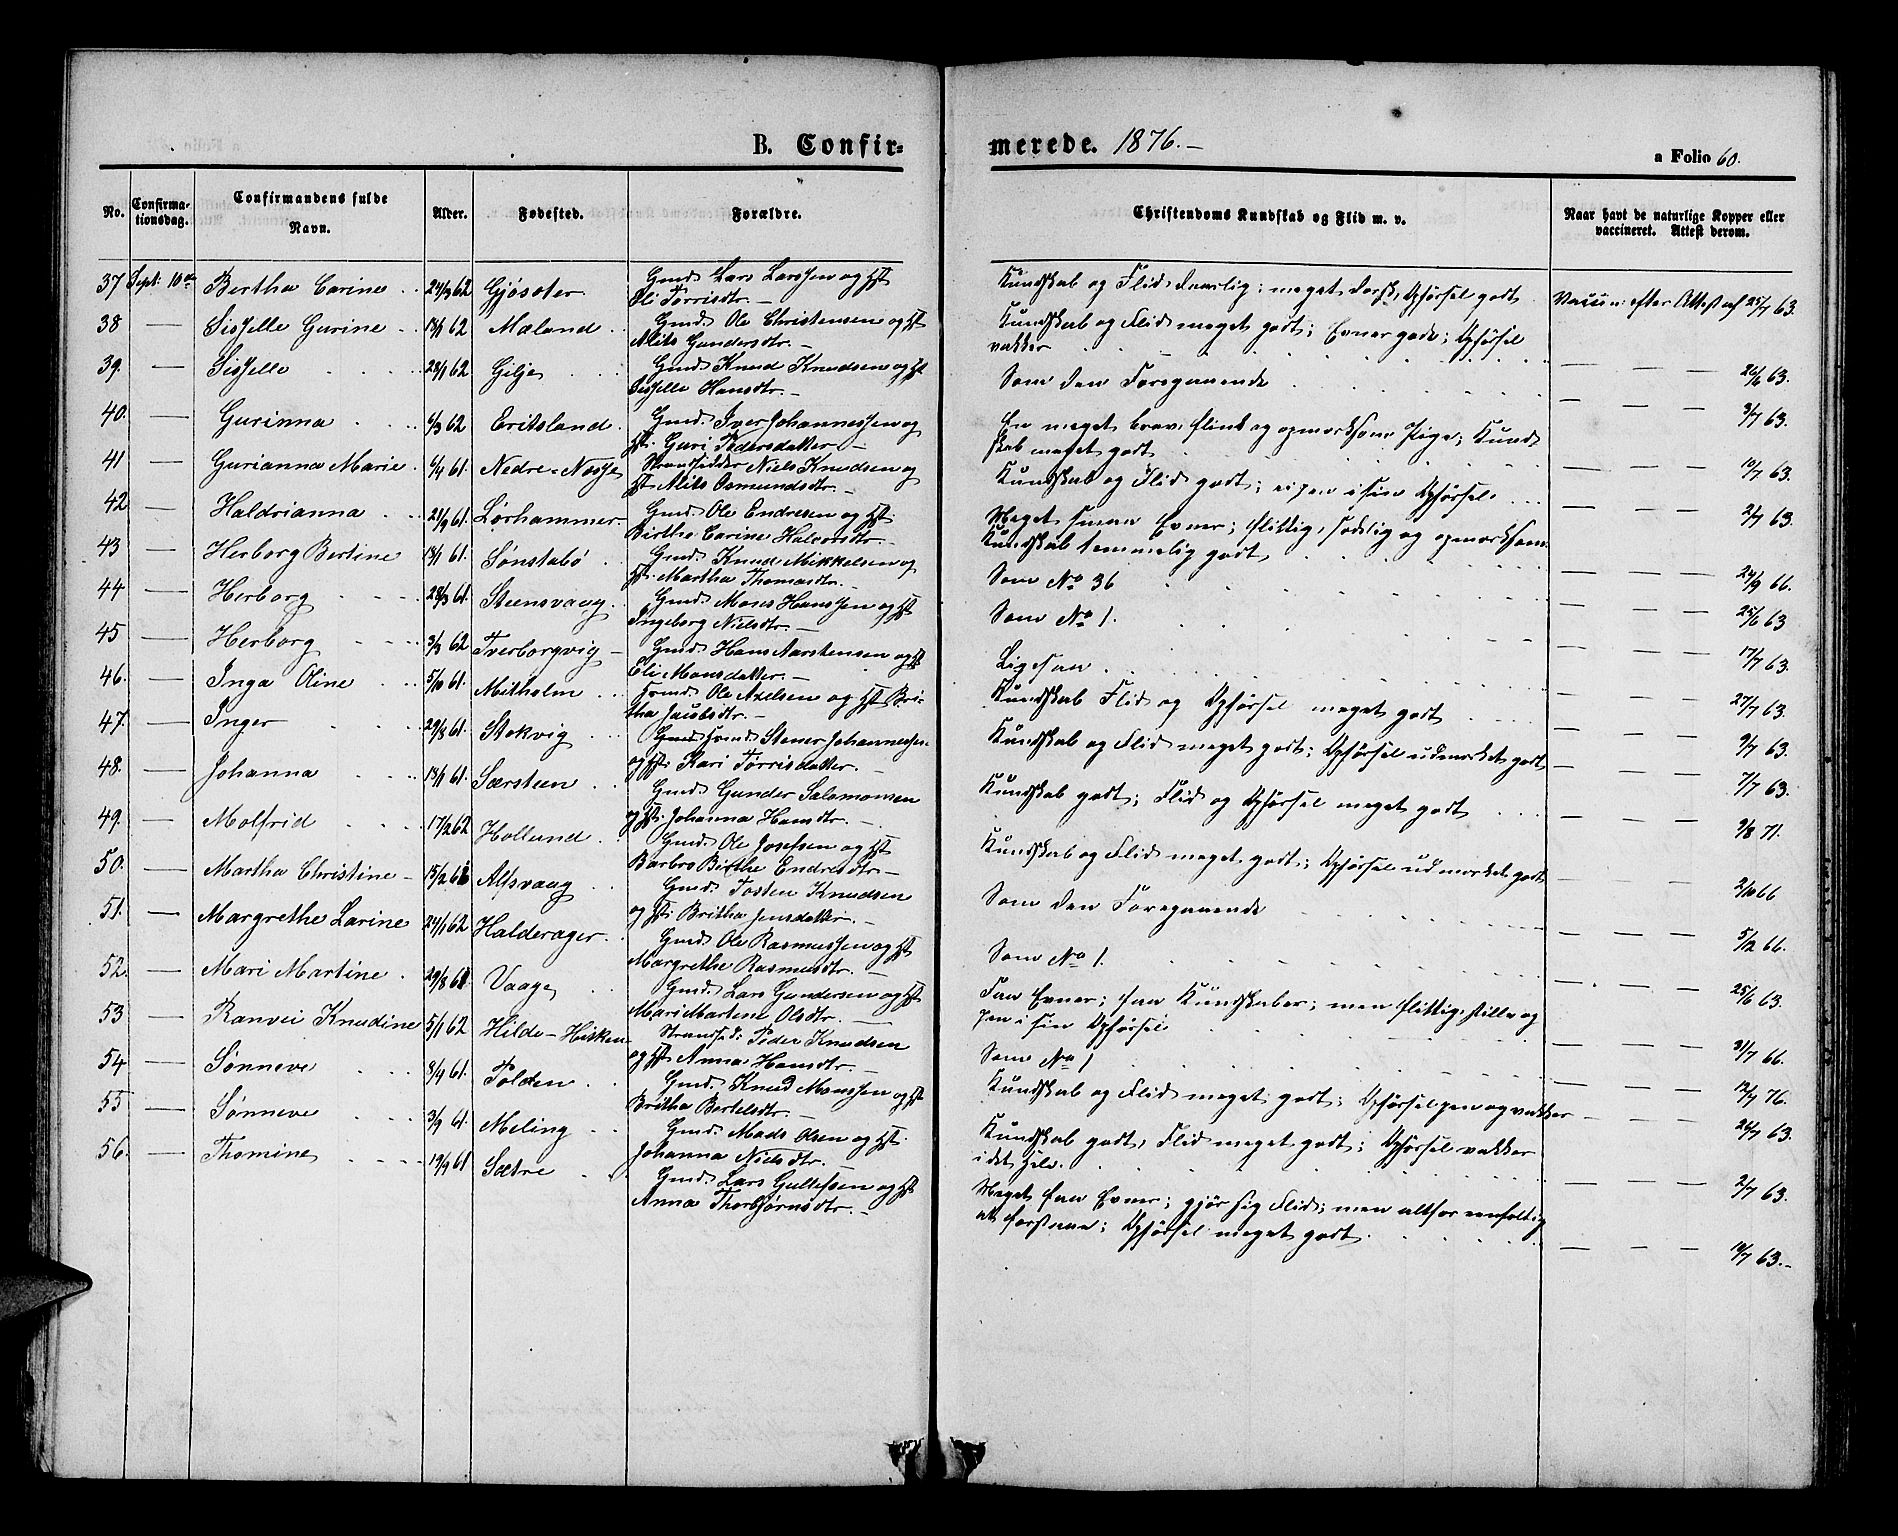 B. Confir=
merede. 1876.-
a Folio 60.
No.
Confirma-
tionsdag.
Confirmandens fulde
Navn.
Alder.
Fødested.
Forældre.
Christendoms Kundskab og Flid m. v.
Naar havt de naturlige Kopper eller
vaccineret. Attest derom.
37 Sept: 10de Bertha Carine 24/3 62 Gjøsøter Gmd. Lars Larssen og Hst
Eli Torrisdtr. -
Kundskab og Flid daarlig; meget dorsk, Opførsel godt
Vaccin. efter Attest af 25/7 63.
38 — Sisselle Gurine 13/1 62 Mæland Gmd. Ole Christensen og Hst
Alits Gundersdtr. -
Kundskab og Flid meget godt; Evner gode; Opførsel
vakker
— — — 26/6 63.
39. — Sisselle 28/1 62 Gilje Gmd. Knud Knudsen og Hst
Sisselle Hansdtr. -
Som den Foregaaende
— — — 3/7 63.
40. — Gurinna 6/3 62 Eritsland Gmd. Iver Johannessen og
Hst. Guri Pedersdatter -
En meget brav, flink og opmerksom Pige; Kund
skab meget godt
— — — 13/7 63.
41 — Gurianna Marie 6/4 61. Nedre-Nosje Strandsidder Niels Knudsen og
Hst. Alits Osmundsdtr. -
Kundskab og Flid godt; egen i sin Opførsel
— — — 2/7 63.
42 — Haldrianna 21/9 61. Lørhammer Gmd. Ole Endresen og Hst.
Birthe Carine Halvorsdtr. -
Meget smaa Evner; flittig, sædelig og opmerksom.
Kundskab temmelig godt
— — — 24/9 66.
43 — Herborg Bertine 18/1 61. Sønstabø Gmd. Knud Mikkelsen og
Hst. Martha Thomasdtr. -
Som No 36
— — — 25/6 63
44 — Herborg 28/3 61. Steensvaag Gmd. Mons Hanssen og Hst
Ingeborg Nielsdtr. -
Som No 1.
— — — 17/7 63.
45 — Herborg 3/3 62 Tverborgvig Gmd. Hans Aarstensen og Hst
Eli Monsdatter. -
Ligesaa
— — — 27/7 63.
46. — Inga Oline 5/10 61. Mitholm Gmd. Ole Axelsen og Hst Bri-
tha Jacobsdtr. -
Kundskab Flid og Opførsel meget godt
— — — 9/7 63.
47. — Inger 29/8 61. Stokvig Gmd Stener Johannessen
og Hst. Kari Torrisdatter. -
Kundskab og Flid meget godt; Opførsel udmerket godt
— — — 7/7 63.
48. — Johanna 13/1 61. Særsteen Gmd. Gunder Salamonsen
og Hst. Johanna Hansdtr. -
Kundskab godt; Flid og Opførsel meget godt
— — — 9/8 71.
49. — Molfrid 17/2 62 Hollund Gmd. Ole Josefsen og Hst
Barbro Birthe Endresdtr. -
Kundskab og Flid meget godt; Opførsel udmerket godt
— — — 2/10 66
50. — Martha Christine 15/2 61 Alfsvaag Gmd. Tosten Knudsen
og Hst. Britha Jensdatter. -
Som den Foregaaende
— — — 5/12 66.
51. — Margrethe Larine 24/1 62 Halderager Gmd. Ole Rasmussen og Hst
Margrethe Rasmusdtr. -
Som No 1.
— — — 25/6 63.
52. — Mari Martine 29/8 61. Vaage Gmd. Lars Gundersen og Hst
Mari Martine Olsdtr. -
Faa Evner; faa Kundskaber; men flittig, stille og
pen i sin Opførsel
— — — 31/7 66.
53 — Ranvei Knudine 5/1 62 Hilde-Hisken Strandsd: Peder Knudsen
og Hst Anna Hansdtr. -
Som No 1
— — — 12/7 76.
54 — Sønneve 8/9 61. Folden Gmd. Knud Monssen og Hst
Britha Bertelsdtr. -
Kundskab og Flid meget godt; Opførsel pen og vakker
— — — 26/7 63.
55 — Sønneve 3/9 61. Meling Gmd. Mads Olsen og Hst.
Johanna Nielsdtr.
Kundskab godt, Flid meget godt; Opførsel vakker
i det Hele.
— — — 2/7 63.
56. — Thomine 19/9 61 Sætre Gmd. Lars Gullefsen og Hst
Anna Thorbjørnsdtr. -
Meget faa Evner; gjør sig Flid; men altfor eenfoldig
at forstaae; Opførsel meget godt.
— — — 19/7 63.-